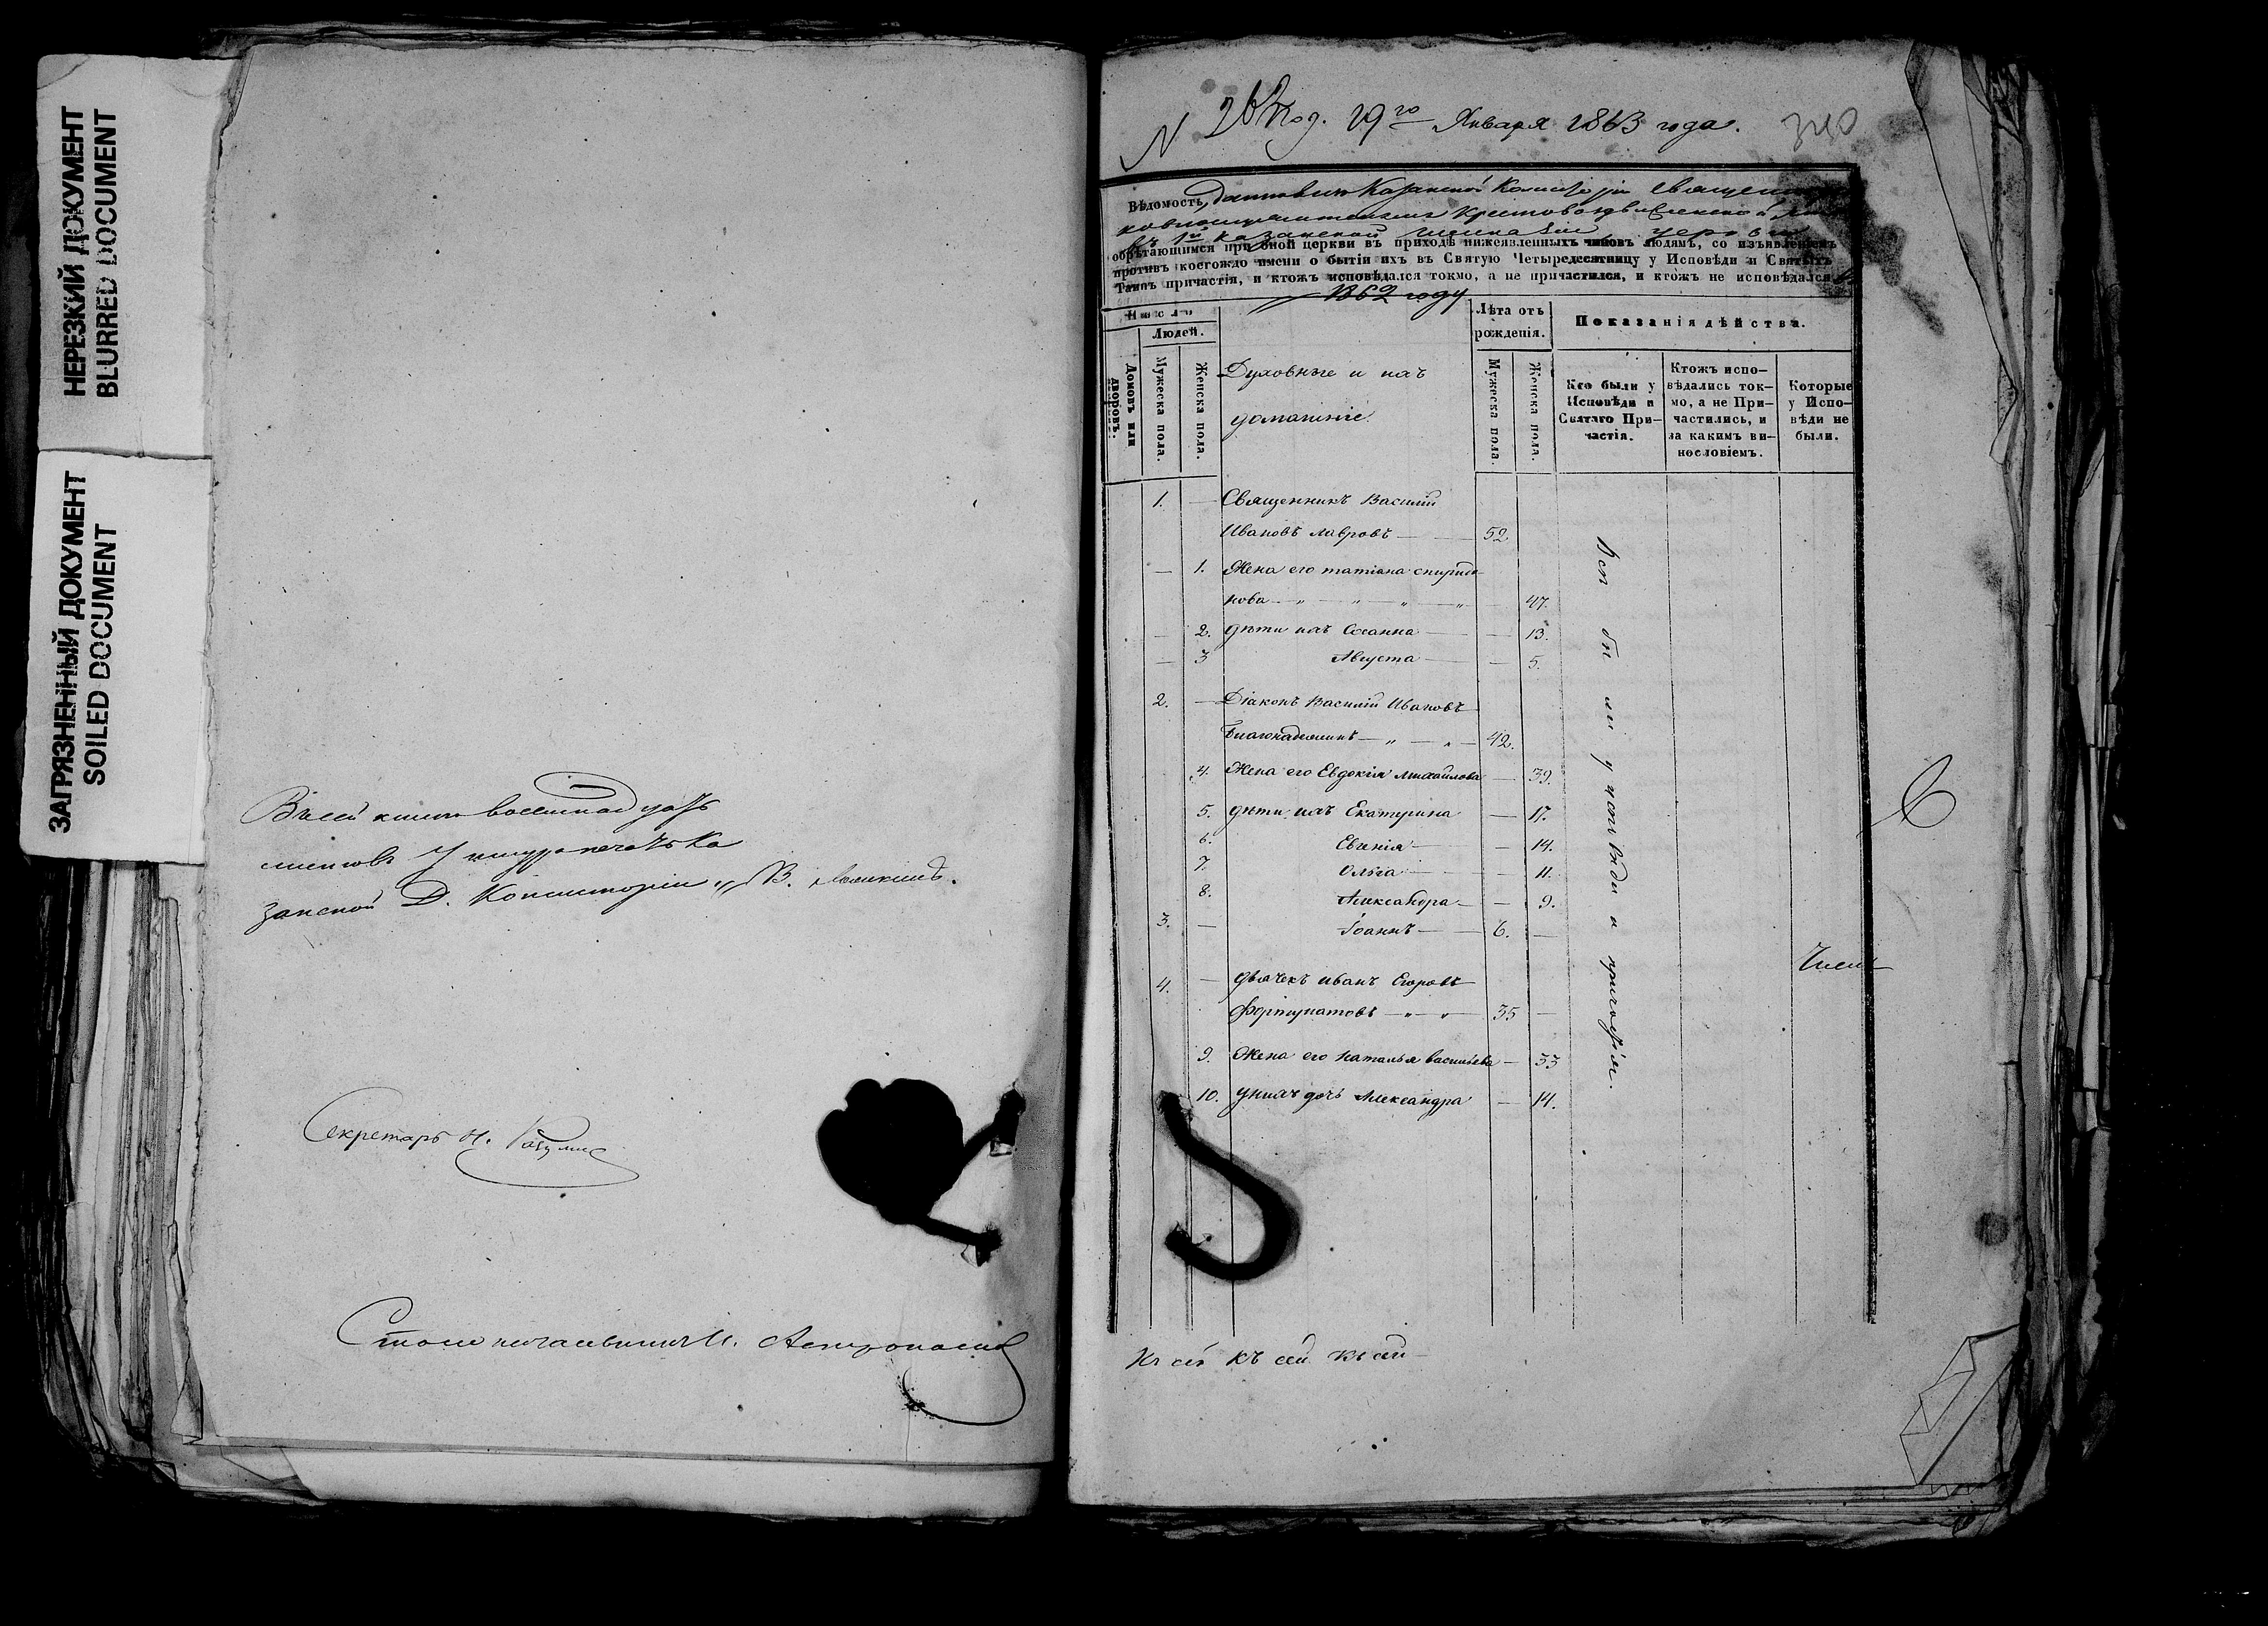 НЕРЕЗКИЙ ДОКУМЕНТ
BLURRED DOCUMENT
ЗАГРЯЗНЕННЫЙ ДОКУМЕНТ
SOILED DOCUMENT
Въ сей книгѣ восемнадцать
листовъ У шнура печать Ка
занской Д. Консисторіи
Секретарь Н.
Столоначальникъ
N 26 Под. 19го Января 1863 года.
340
Вѣдомость, Казанской
Крестовоздвиженской
въ 1й Казанской Гимназіи церкви
обрѣтающимся при оной церкви въ приходѣ нижеявленныхъ чиновъ людямъ, со изъявленіемъ
противъ коегождо имени о бытіи ихъ въ Святую Четыредесятницу у Исповѣди и Святыхъ
Таинъ причастія, и ктожъ исповѣдался токмо, а не причастился, и ктожъ не исповѣдался
1862 году
Число
Людей.
Домовъ или дворовъ.
Мужеска пола.
Женска пола.
Духовные и ихъ
домашніе
Лѣта отъ
рожденія.
Мужеска пола.
Женска пола.
Показанія дѣйства.
Кто были у
Исповѣди и
Святаго При-
частія.
Ктожъ испо-
вѣдались ток-
мо, а не При-
частились, и
за какимъ ви-
нословіемъ.
Которые
у Испо-
вѣди не
были.
1. — Священникъ Василій
Ивановъ Лавровъ — 52
— 1. Жена его Татіана Спиридо
нова — „ — „ — „ — „ — 47.
— 2. дѣти ихъ Сосанна — — 13.
— 3 Августа — — 5.
2. — Діаконъ Василій Ивановъ
Благонадеждинъ — „ — „ — 42.
4. Жена его Евдокія Михайлова — 39.
5. дѣти ихъ Екатерина — 17.
6. Евгенія — — 14.
7. Ольга — — 11.
8. Александра — — 9.
3. — Іоаннъ — 6. —
4. — дьячекъ Иванъ Егоровъ
Фортунатовъ — „ — „ — 35 —
9. Жена его Наталья Васильева — 33
10. у нихъ дочь Александра — 14.
Всѣ были у исповѣди и
къ сей къ сей къ сей